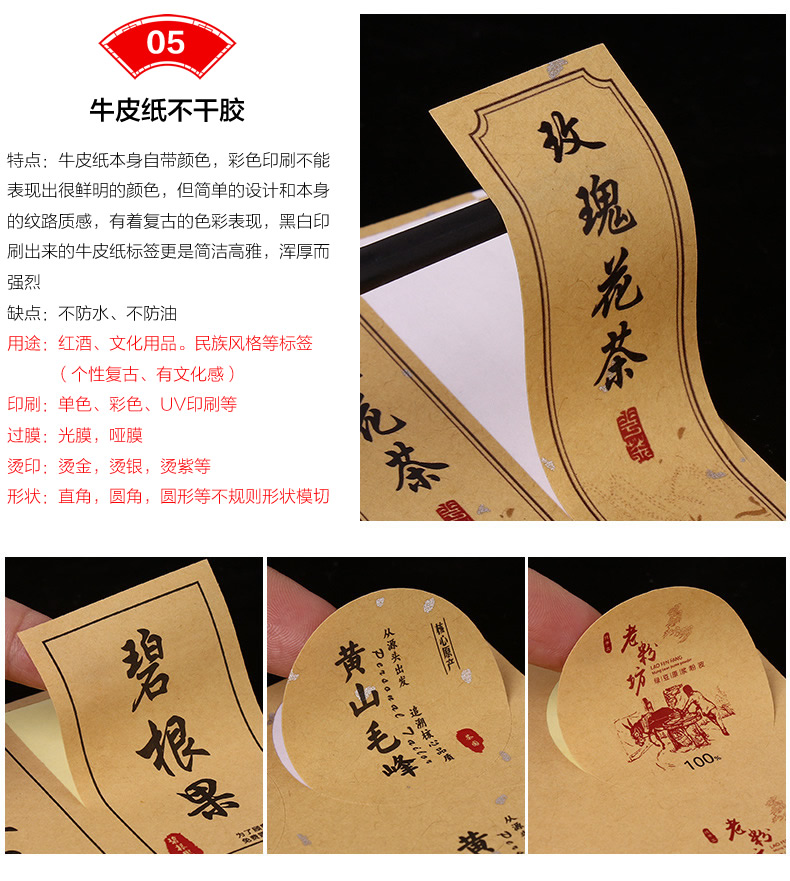 05
牛皮纸不干胶
特点：牛皮纸本身自带颜色，彩色印刷不能
表现出很鲜明的颜色，但简单的设计和本身
的纹路质感，有着复古的色彩表现，黑白印
刷出来的牛皮纸标签更是简洁高雅，浑厚而
强烈
缺点：不防水、不防油
用途：红酒、文化用品。民族风格等标签
（个性复古、有文化感）
印刷：单色、彩色、UV印刷等
过膜：光膜，哑膜
烫印：烫金，烫银，烫紫等
形状：直角，圆角，圆形等不规则形状模切
玫瑰花茶
花茶
碧根果
碧根
为了
免费
核心原产
从源头出发
Personal Tailor
追溯核心品质
黄山毛峰
从源
黄
老粉坊
LAO FEN FANG
绿豆原浆粉皮
100%
老粉
LAO FE